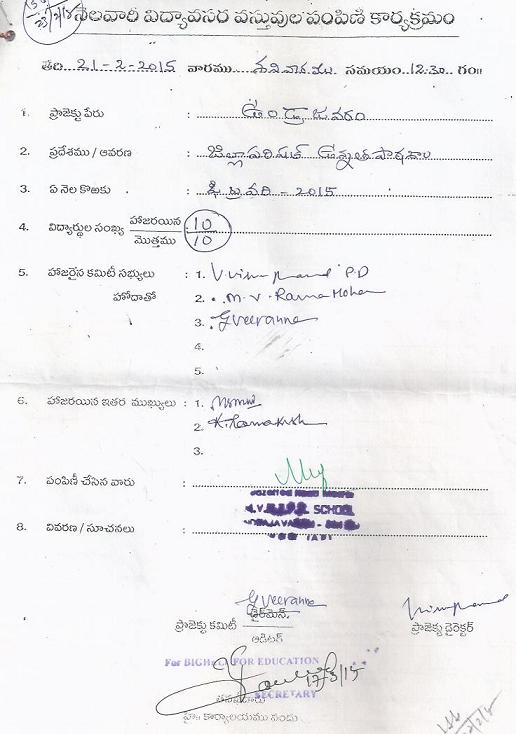 నెలవారీ విద్యావసర వస్తువుల పంపిణీ కార్యక్రమం
తేది 21-2-2015 వారము శనివారము సమయం 12-30 గం॥
1. ప్రాజెక్టు పేరు : ఉండ్రాజవరం
2. ప్రదేశము / ఆవరణ : జిల్లాపరిషత్ ఉన్నత పాఠశాల
3. ఏ నెల కొఱకు : ఫిబ్రవరి - 2015
4. విద్యార్థుల సంఖ్య హాజరయిన / మొత్తము : 10 / 10
5. హాజరైన కమిటీ సభ్యులు : 1. P.D
హోదాతో 2. M.V. Rama Mohan
3. G Veeranna
4.
5.
6. హాజరయిన ఇతర ముఖ్యులు : 1.
2. K. Ramakrish
3.
7. పంపిణీ చేసిన వారు :
SCHOOL
8. వివరణ / సూచనలు :
G Veeranna
ఛైర్మెన్.
ప్రాజెక్టు కమిటీ
ఆడిటర్
ప్రాజెక్టు డైరెక్టర్
For BIGHELP FOR EDUCATION
17/3/15
SECRETARY
హైః కార్యాలయము నందు